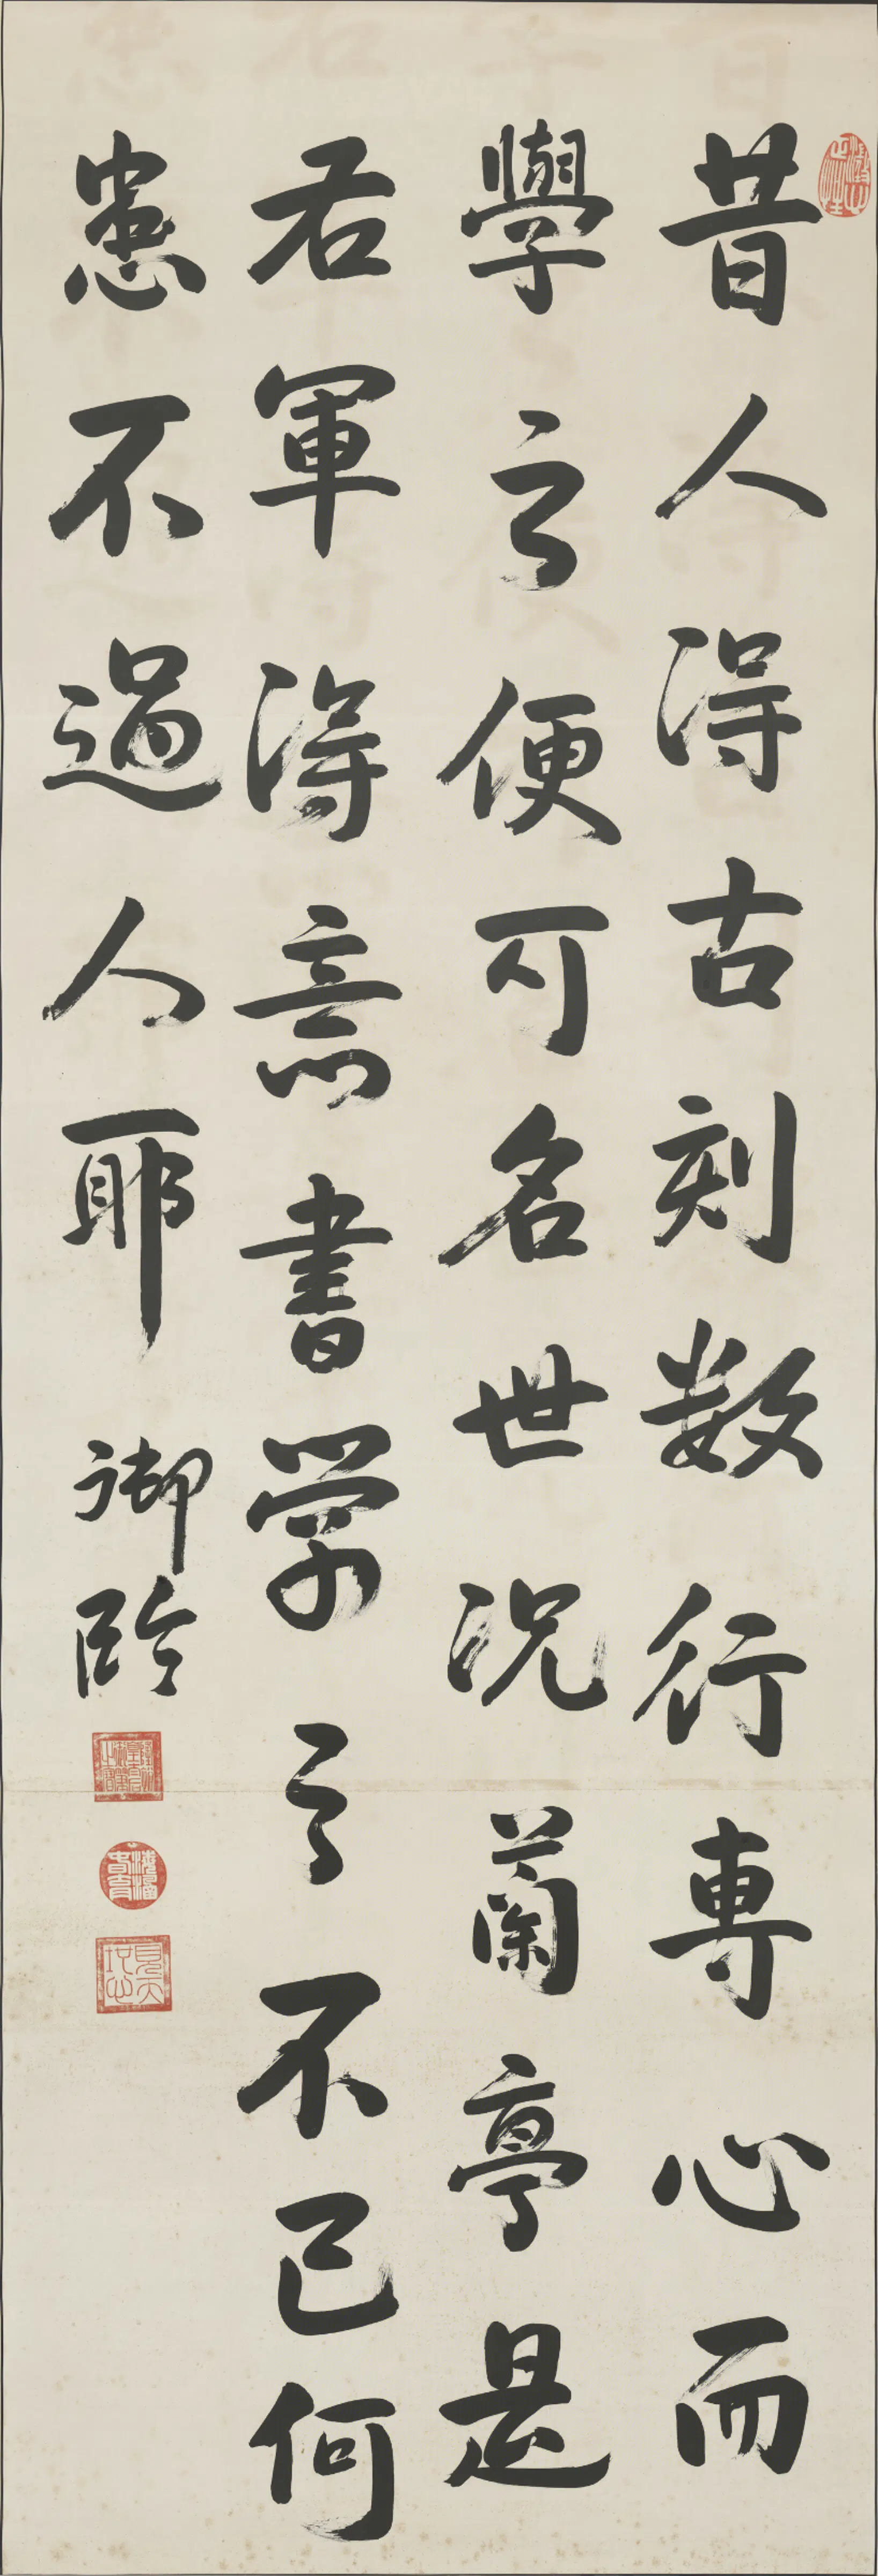 昔人得古刻数行專心而
學之便可名世況蘭亭是
右軍得意書学之不已何
患不過人耶 御臨